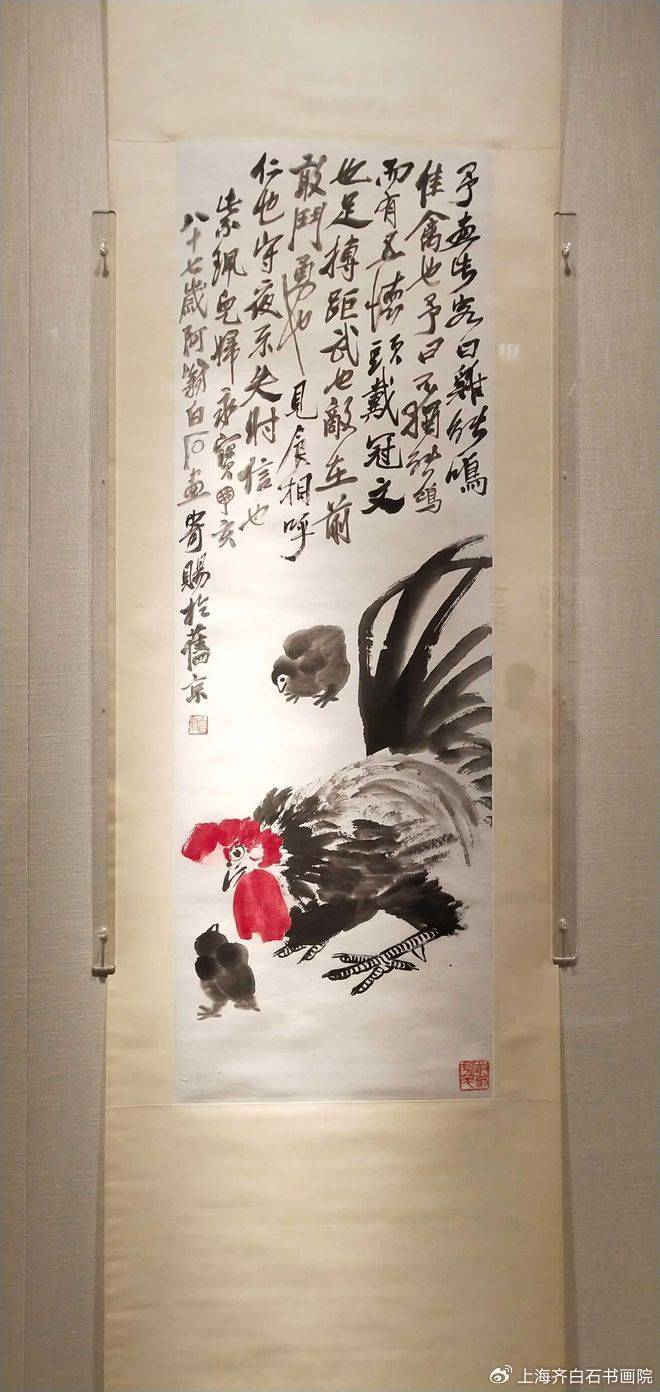 予畫此客曰雞能鳴
佳禽也予曰不獨能鳴
而有五德頭戴冠文
也足搏距武也敵在前
敢鬥勇也見食相呼
仁也守夜不失時信也
紫珮兒婦永寶亥
八十七歲阿翁白石畫寄賜於舊京
上海齐白石书画院